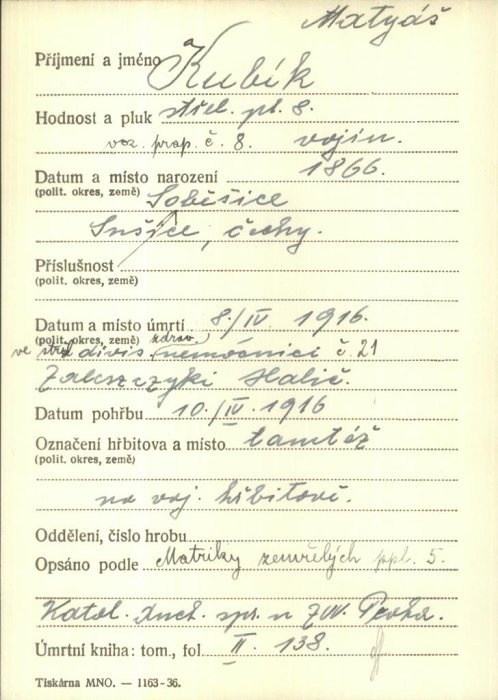 Matyáš
Příjmení a jméno Kubík
Hodnost a pluk střel. pl. 8.
voz. prap. č. 8. vojín.
Datum a místo narození 1866.
(polit. okres, země) Soběšice
Sušice, čechy.
Příslušnost
(polit. okres, země)
Datum a místo úmrtí 8./IV. 1916.
(polit. okres, země) zdrav.
ve střel divis. nemocnici č. 21
Zaleszczyki Halič.
Datum pohřbu 10./IV. 1916
Označení hřbitova a místo tamtéž
(polit. okres, země)
na voj. hřbitově.
Oddělení, číslo hrobu
Opsáno podle Matriky zemřelých ppl. 5.
Katol. duch. spr. u ZVV. Praha.
Úmrtní kniha: tom., fol. II. 138.
Tiskárna MNO. — 1163-36.